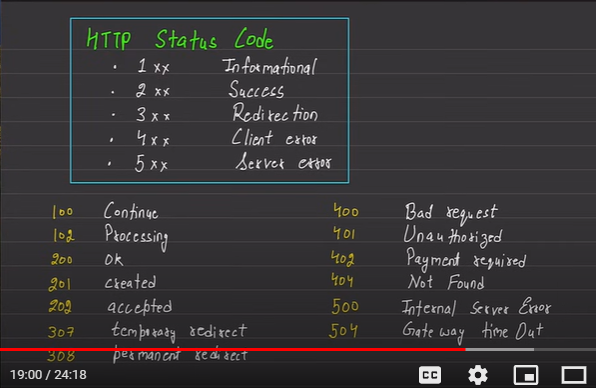 HTTP Status Code
· 1xx Informational
· 2xx Success
· 3xx Redirection
· 4xx Client error
· 5xx Server error
100 Continue
102 Processing
200 OK
201 created
202 accepted
307 temporary redirect
308 permanent redirect
400 Bad request
401 Unauthorized
402 Payment required
404 Not Found
500 Internal Server Error
504 Gateway time Out
19:00 / 24:18
CC